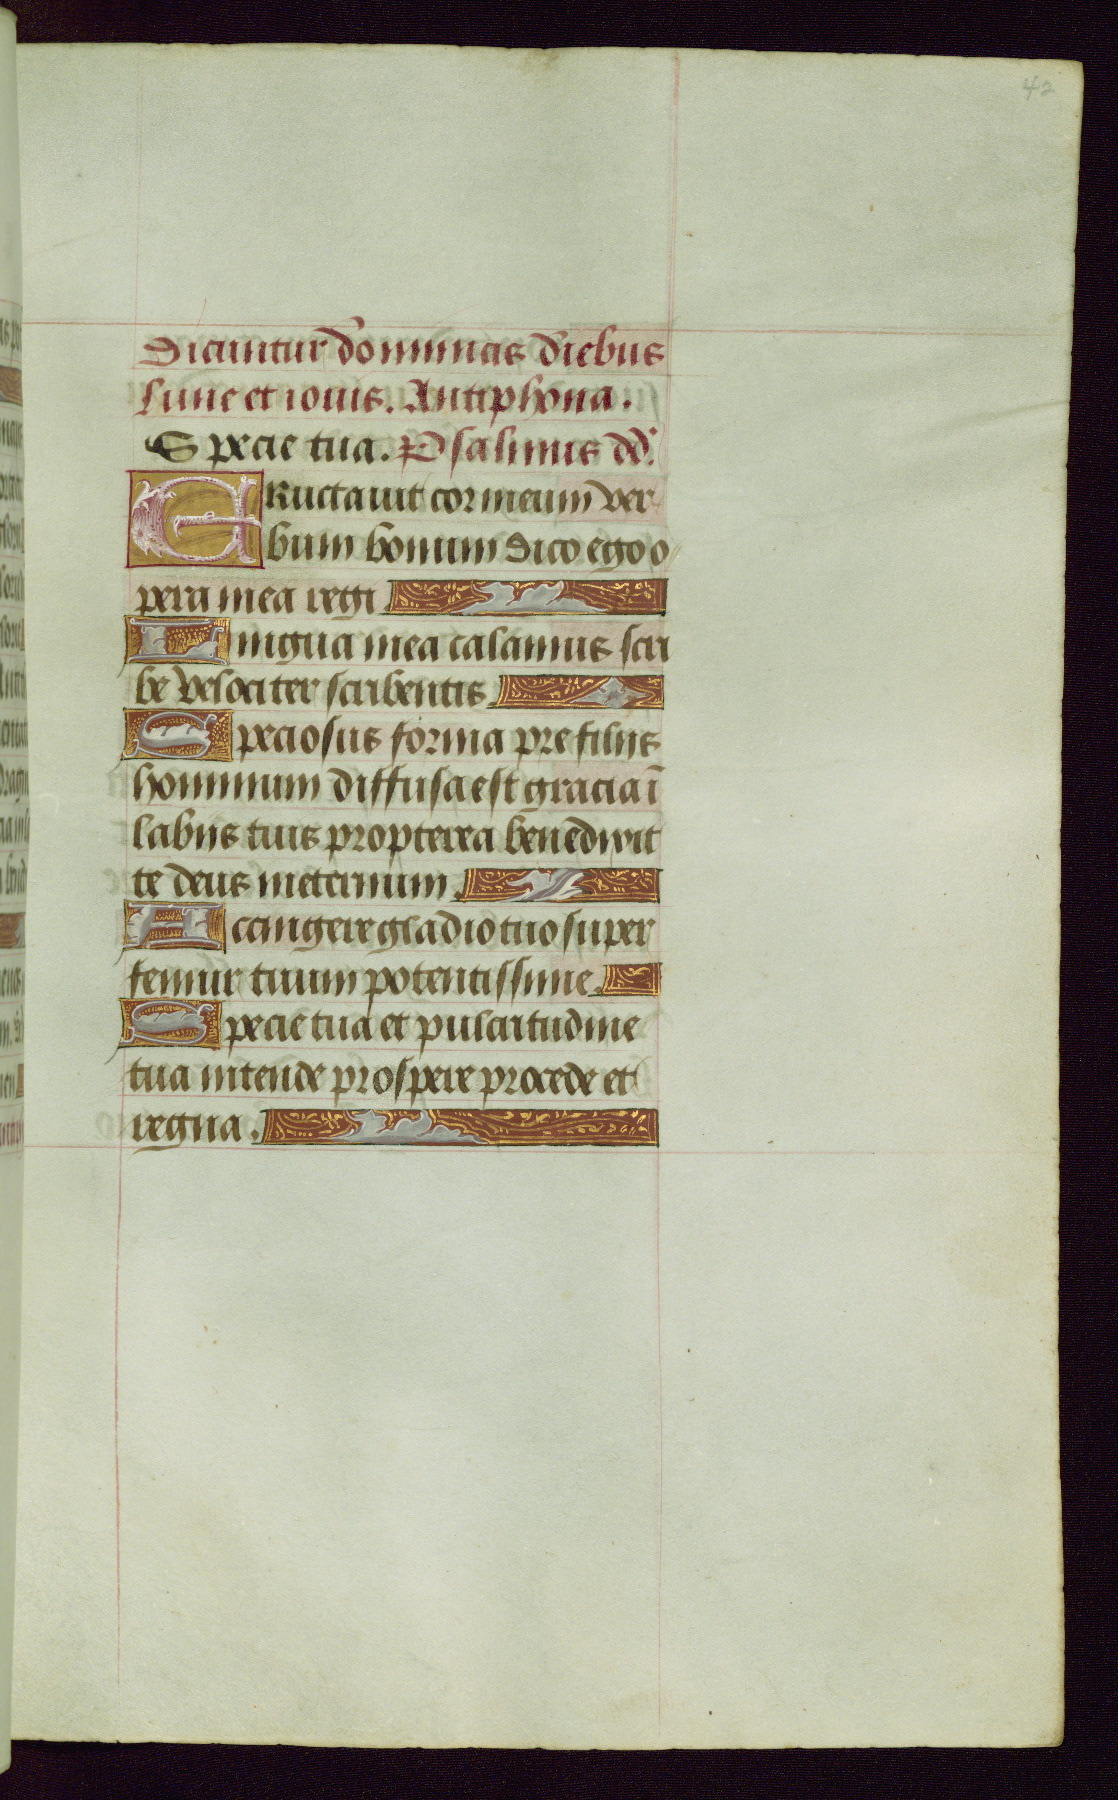 42
Dicuntur dominicis diebus
lune et iouis. Antiphona.
Specie tua. Psalmus dd.
ERuctauit cor meum ver
bum bonum dico ego o
pera mea regi
Lingua mea calamus scri
be velociter scribentis
Speciosus forma pre filiis
hominum diffusa est gracia ī
labiis tuis propterea benedixit
te deus ineternum.
Accingere gladio tuo super
femur tuum potentissime.
Specie tua et pulcritudine
tua intende prospere procede et
regna.